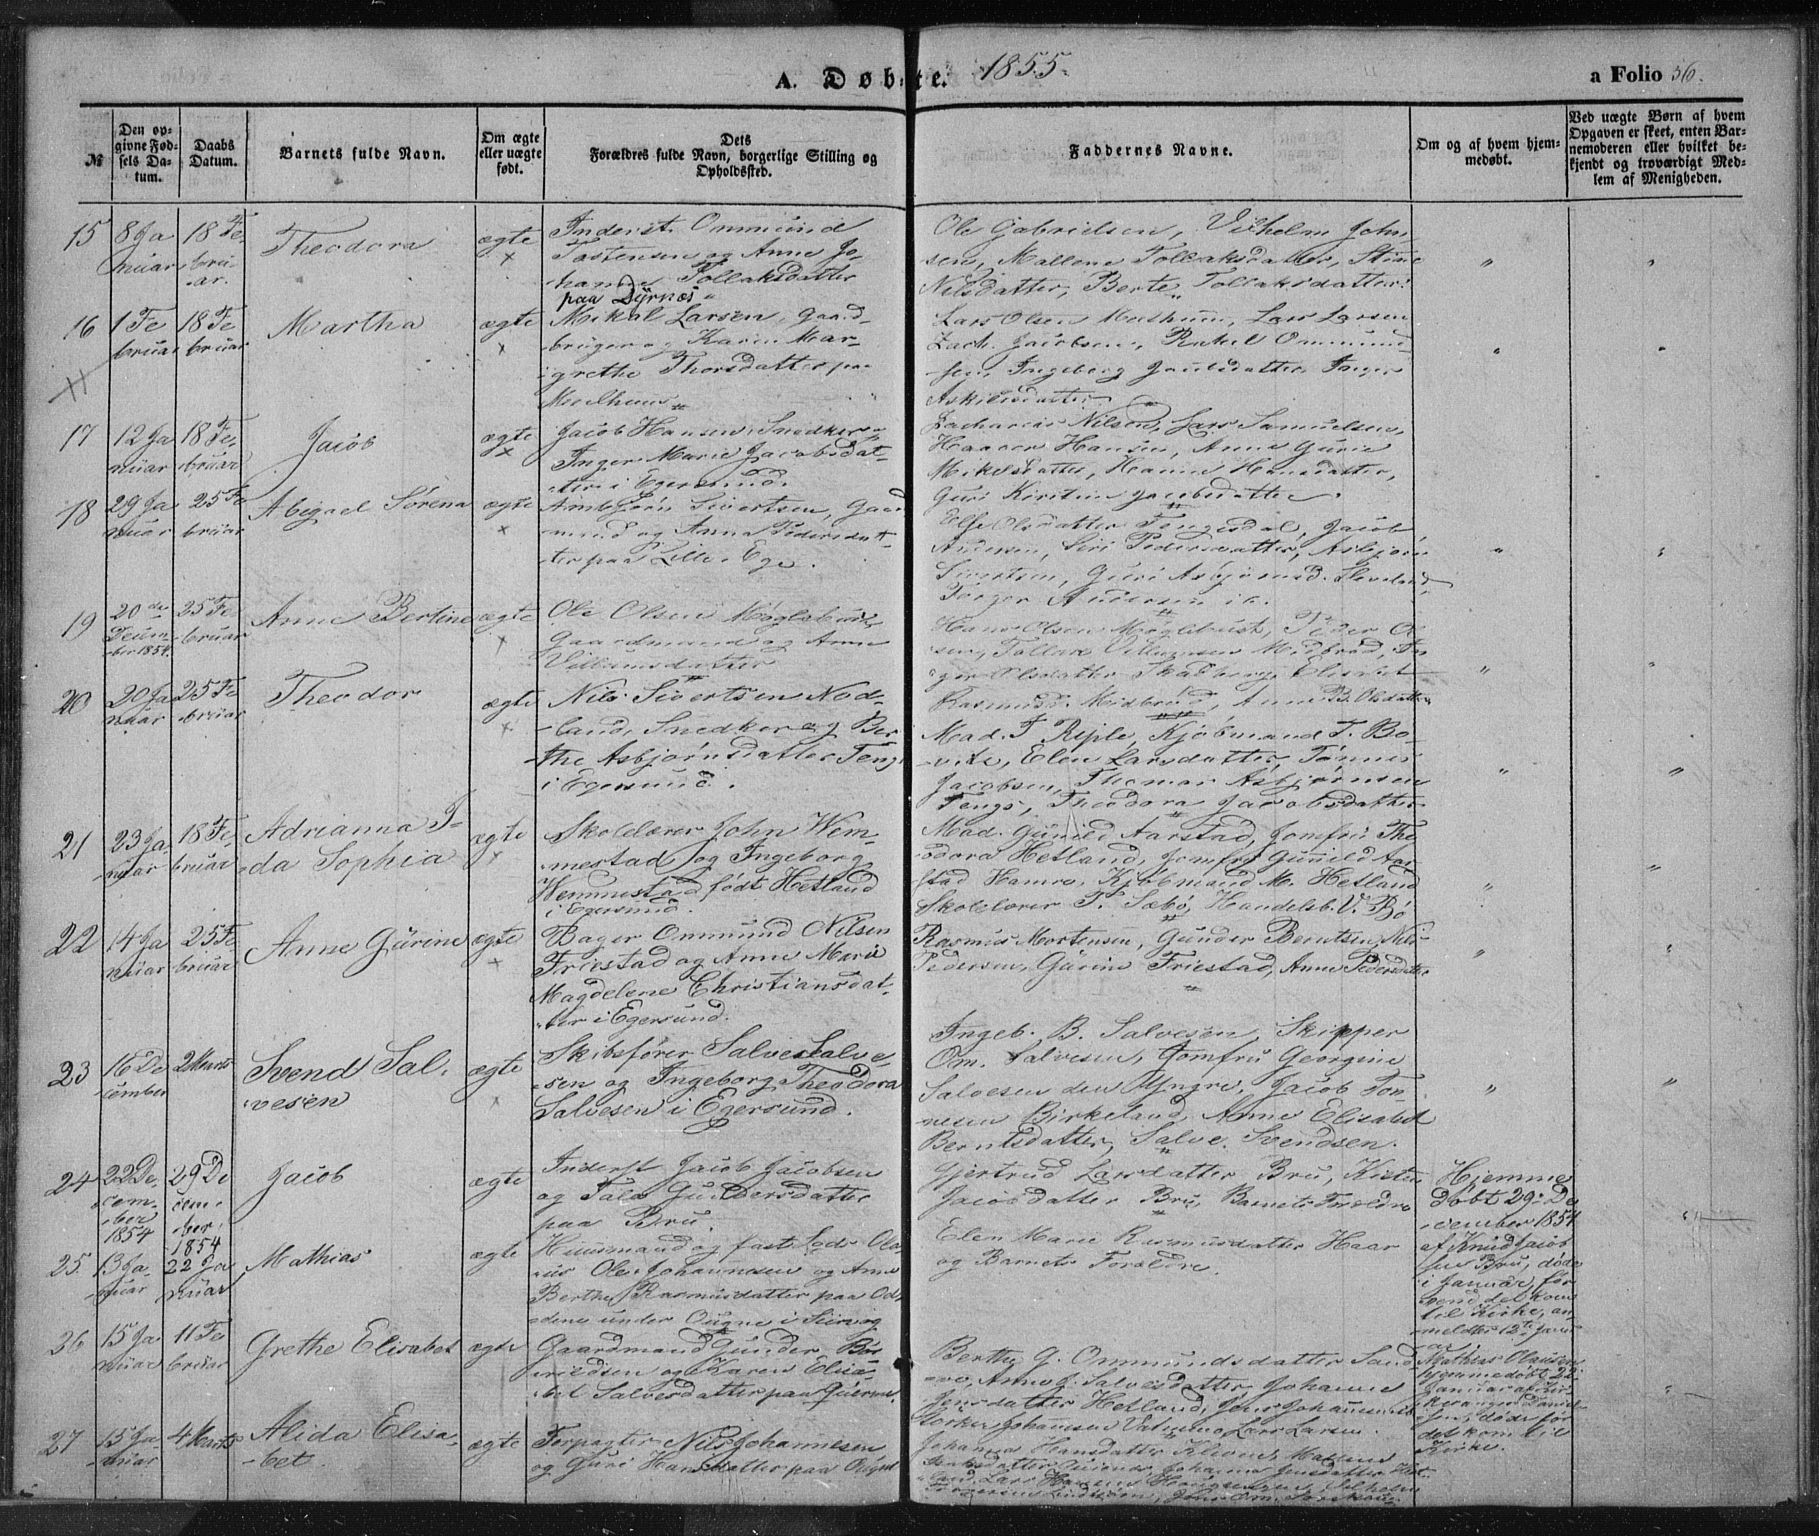 A. Døbte. 1855.
a Folio 56.
№
Den op-
givne Fød-
sels Da-
tum.
Daabs
Datum.
Barnets fulde Navn.
Om ægte
eller uægte
født.
Dets
Forældres fulde Navn, borgerlige Stilling og
Opholdssted.
Faddernes Navne.
Om og af hvem hjem-
medøbt.
Ved uægte Børn af hvem
Opgaven er skeet, enten Bar-
nemoderen eller hvilket be-
kjendt og troværdigt Med-
lem af Menigheden.
15
8 Ja
nuar
18 Fe
bru-
ar.
Theodora
ægte
Inderst. Ommund
Tostensen og Anne Jo-
hanne Tollaksdatter
paa Dyrnæs
Ole Gabrielsen, Vilhelm John
sen, Mallene Tollaksdatter, Stine
Nilsdatter, Berte Tollaksdatter.
16
1 Fe
bruar
18 Fe
bruar
Martha
ægte
Mikal Larsen, Gaard-
bruger og Karen Mar-
grethe Thorsdatter paa
Lars Olsen, Lars Larsen
Zach. Jacobsen, Rakel Ommund
Ingeborg, Inger
Askilsdatter
17
12 Ja
nuar
18 Fe
bruar
Jacob
ægte
Jacob Hansen, Snedker
Inger Marie Jacobsdat-
ter i Egersund.
Zacharias Nilsen, Lars Samuelsen,
Haaver Hansen, Anne Gurie
Mikelsdatter, Hanne Hansdatter,
Guri Kirstine Jacobsdatter.
18
29 Ja
nuar
25 Fe
bruar
Abigael Sørena
ægte
Asbjørn Sivertsen, Gaard
mand og Anna Pedersdat-
ter paa Lille Ege.
Else Olsdatter Tengesdal, Jacob
Andersen, Siri Pedersdatter, Asbjørn
Sivertsen, Guri Asbjørnsd.
Torger Andersen
19
20 de
Decem
ber 1854.
25 Fe
bruar
Anne Bertine
ægte
Ole Olsen Møglebust
Gaardmand og Anne
Villumsdatter
Hans Olsen Møglebust, Peder Ol
sen, Tollak Villumsen Midbrød, In
ger Olsdatter Skadberg, Elisabet
Rasmusd. Midbrød, Anne B. Olsdatter
20
20 Ja
nuar
25 Fe
bruar
Theodor
ægte
Nils Sivertsen Nod-
land, Snedker og Ber
the Asbjørnsdatter Tengs
i Egersund.
Mad. T. Kjøbmand T. Bo-
Elen Larsdatter, Tønnes
Jacobsen, Thomas Asbjørnsen
Tengs, Theodora Jacobsdatter
21
23 Ja-
nuar
18 Fe
bruar
Adrianna I-
da Sophia
ægte
Skolelærer John Wem-
mestad og Ingeborg
Wemmestad født Hetland
i Egersund.
Mad. Gunild Aarstad, Jomfru The
odora Hetland, Jomfru Gunild Aar
stad Hamre, Kjøbmand M. Hetland
Skolelærer T. Sæbø, Handelsb. V. Bø
22
14 Ja
nuar
25 Fe
bruar
Anne Gurine
ægte
Bager Ommund Nilsen
Friestad og Anne Marie
Magdelene Christiansdat-
ter i Egersund.
Rasmus Mortensen, Gunder Berntsen, Nils
Pedersen, Gurine Friestad, Anne Pedersdatter
23
16 De
cember
2 Marts
Svend Sal-
vesen
ægte
Skibsfører Salve Salve
sen og Ingeborg Theodora
Salvesen i Egersund.
Ingeb. B. Salvesen, Skipper
Om. Salvesen, Jomfru Georgine
Salvesen den Yngre, Jacob Ton-
nesen Birkeland, Anne Elisabet
Berntsdatter, Salve Svendsen.
24
22 De-
cem-
ber
1854
29 De
cem-
ber
1854
Jacob
ægte
Inderst Jacob Jacobsen
og Tala Gundersdatter
paa Bru.
Gjertrud Larsdatter Bru, Kisten
Jacobsdatter Bru, Barnets Forældre
Hjemme
døbt 29. De
cember 1854
af Knud Jacob
sen Bru, døde
i Januar, før
end det kom
til Kirke, an
meldte 12te Janu
ar
25.
13 Ja-
nuar
22 Ja
nuar
Mathias
ægte
Huusmand og fast Lods Ola-
us Ole Johannesen og Anne
Berthe Rasmusdatter paa Od-
dene under Ougne i
Elen Marie Rasmusdatter Haar
og Barnets Forældre.
Mathias Olausen
hjemmedøbt 22
Januar af
døde før
det kom til
Kirke.
26
15 Ja
nuar
11 Fe
bruar
Grethe Elisabet
ægte
Gaardmand Gunder
og Karen Elisa-
bet Salvesdatter paa
Berthe G. Ommundsdatter Sand
Anne J. Salvesdatter, Johanne
Jensdatter Hetland, Jens Johannesen
Johannesen, Lars Larsen.
27
15 Ja-
nuar
4 Marts
Alida Elisa-
bet.
ægte
Forpagter Nils Johannesen
og Guri Hansdatter paa Ougne
Johanna Hansdatter, Malene
Johanna Jensdatter Het
land, Lars Hansen